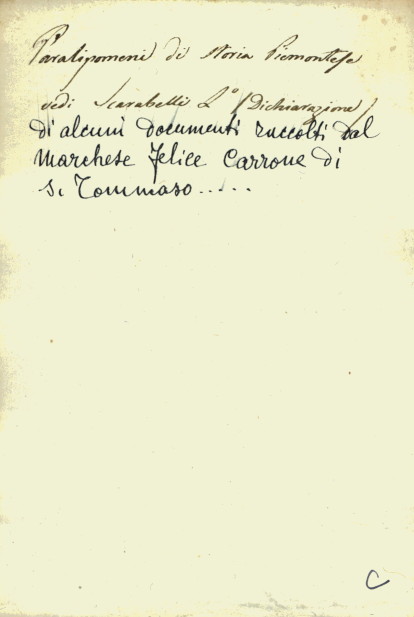 Paralipomeni di Storia Piemontese
vedi Scarabelli Lº (Dichiarazione)
di alcuni documenti raccolti dal
Marchese Felice Carrone di
S. Tommaso.....
C